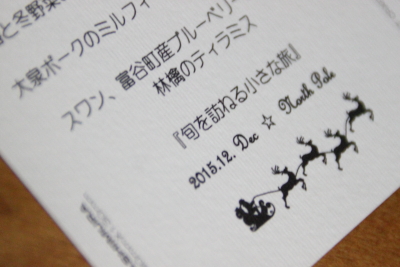 と冬野菜の
大泉ポークのミルフィ
スワン、富谷町産ブルーベリー
林檎のティラミス
『旬を訪ねる小さな旅』
2015.12. Dec ☆ North Pole